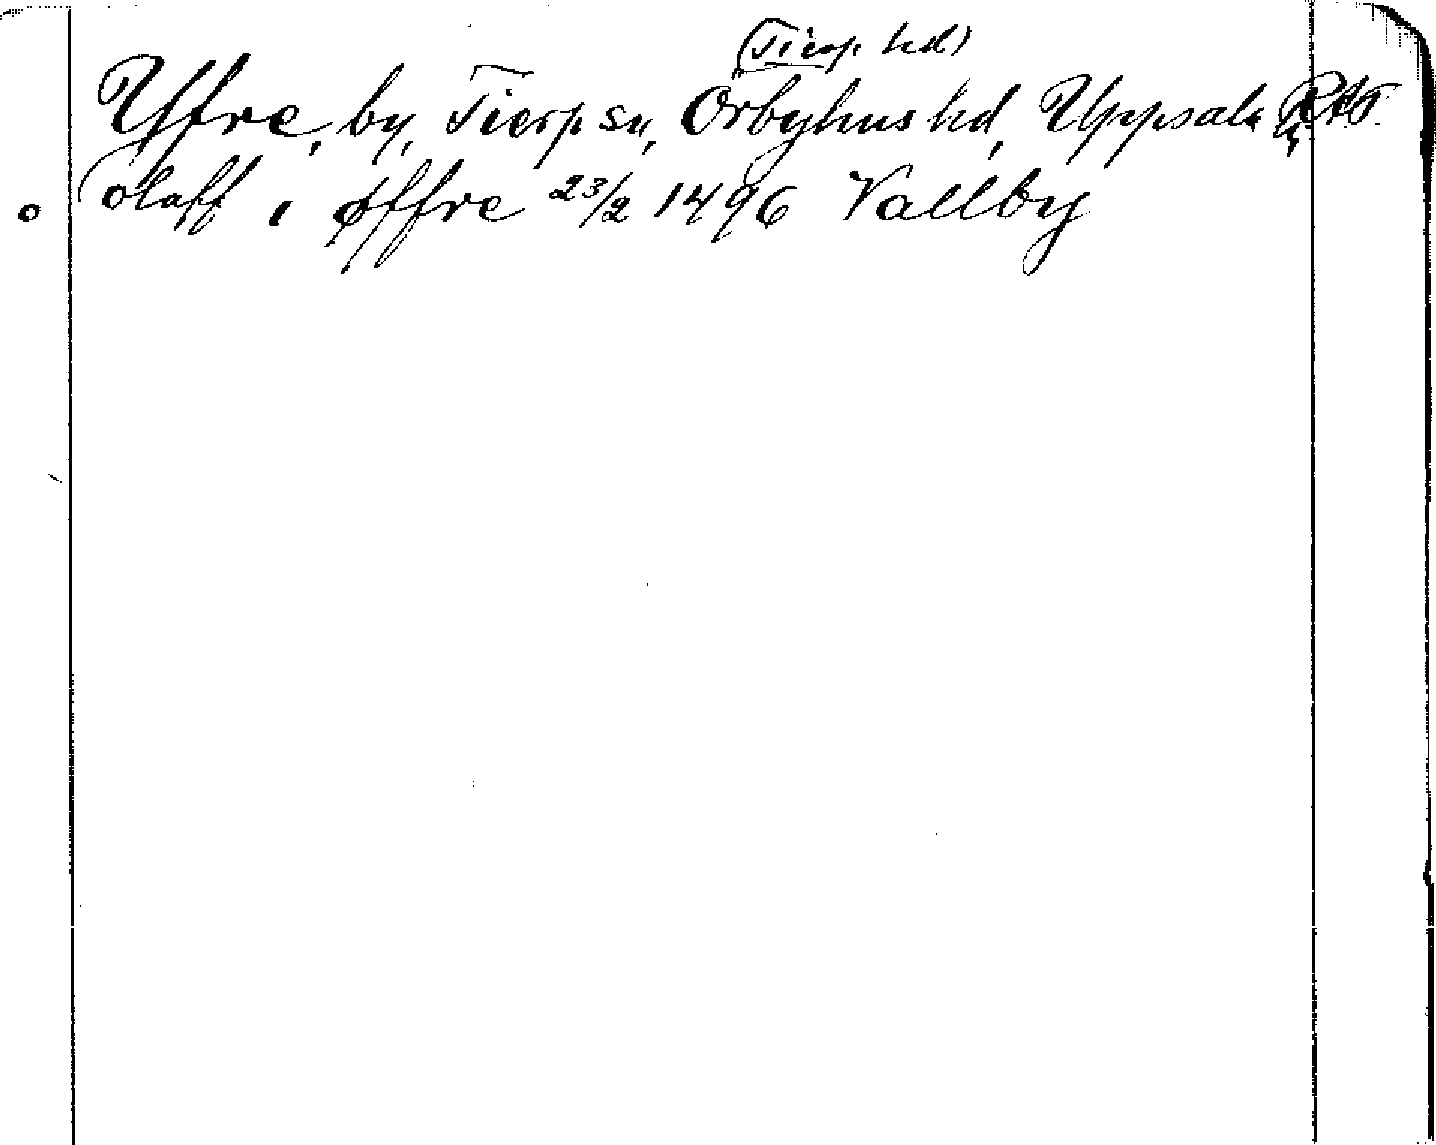 (Tierp hd)
Yfre, by, Tierp sn, Örbyhus hd, Uppsala
(olaff i øffre 23/2 1496 Vallby